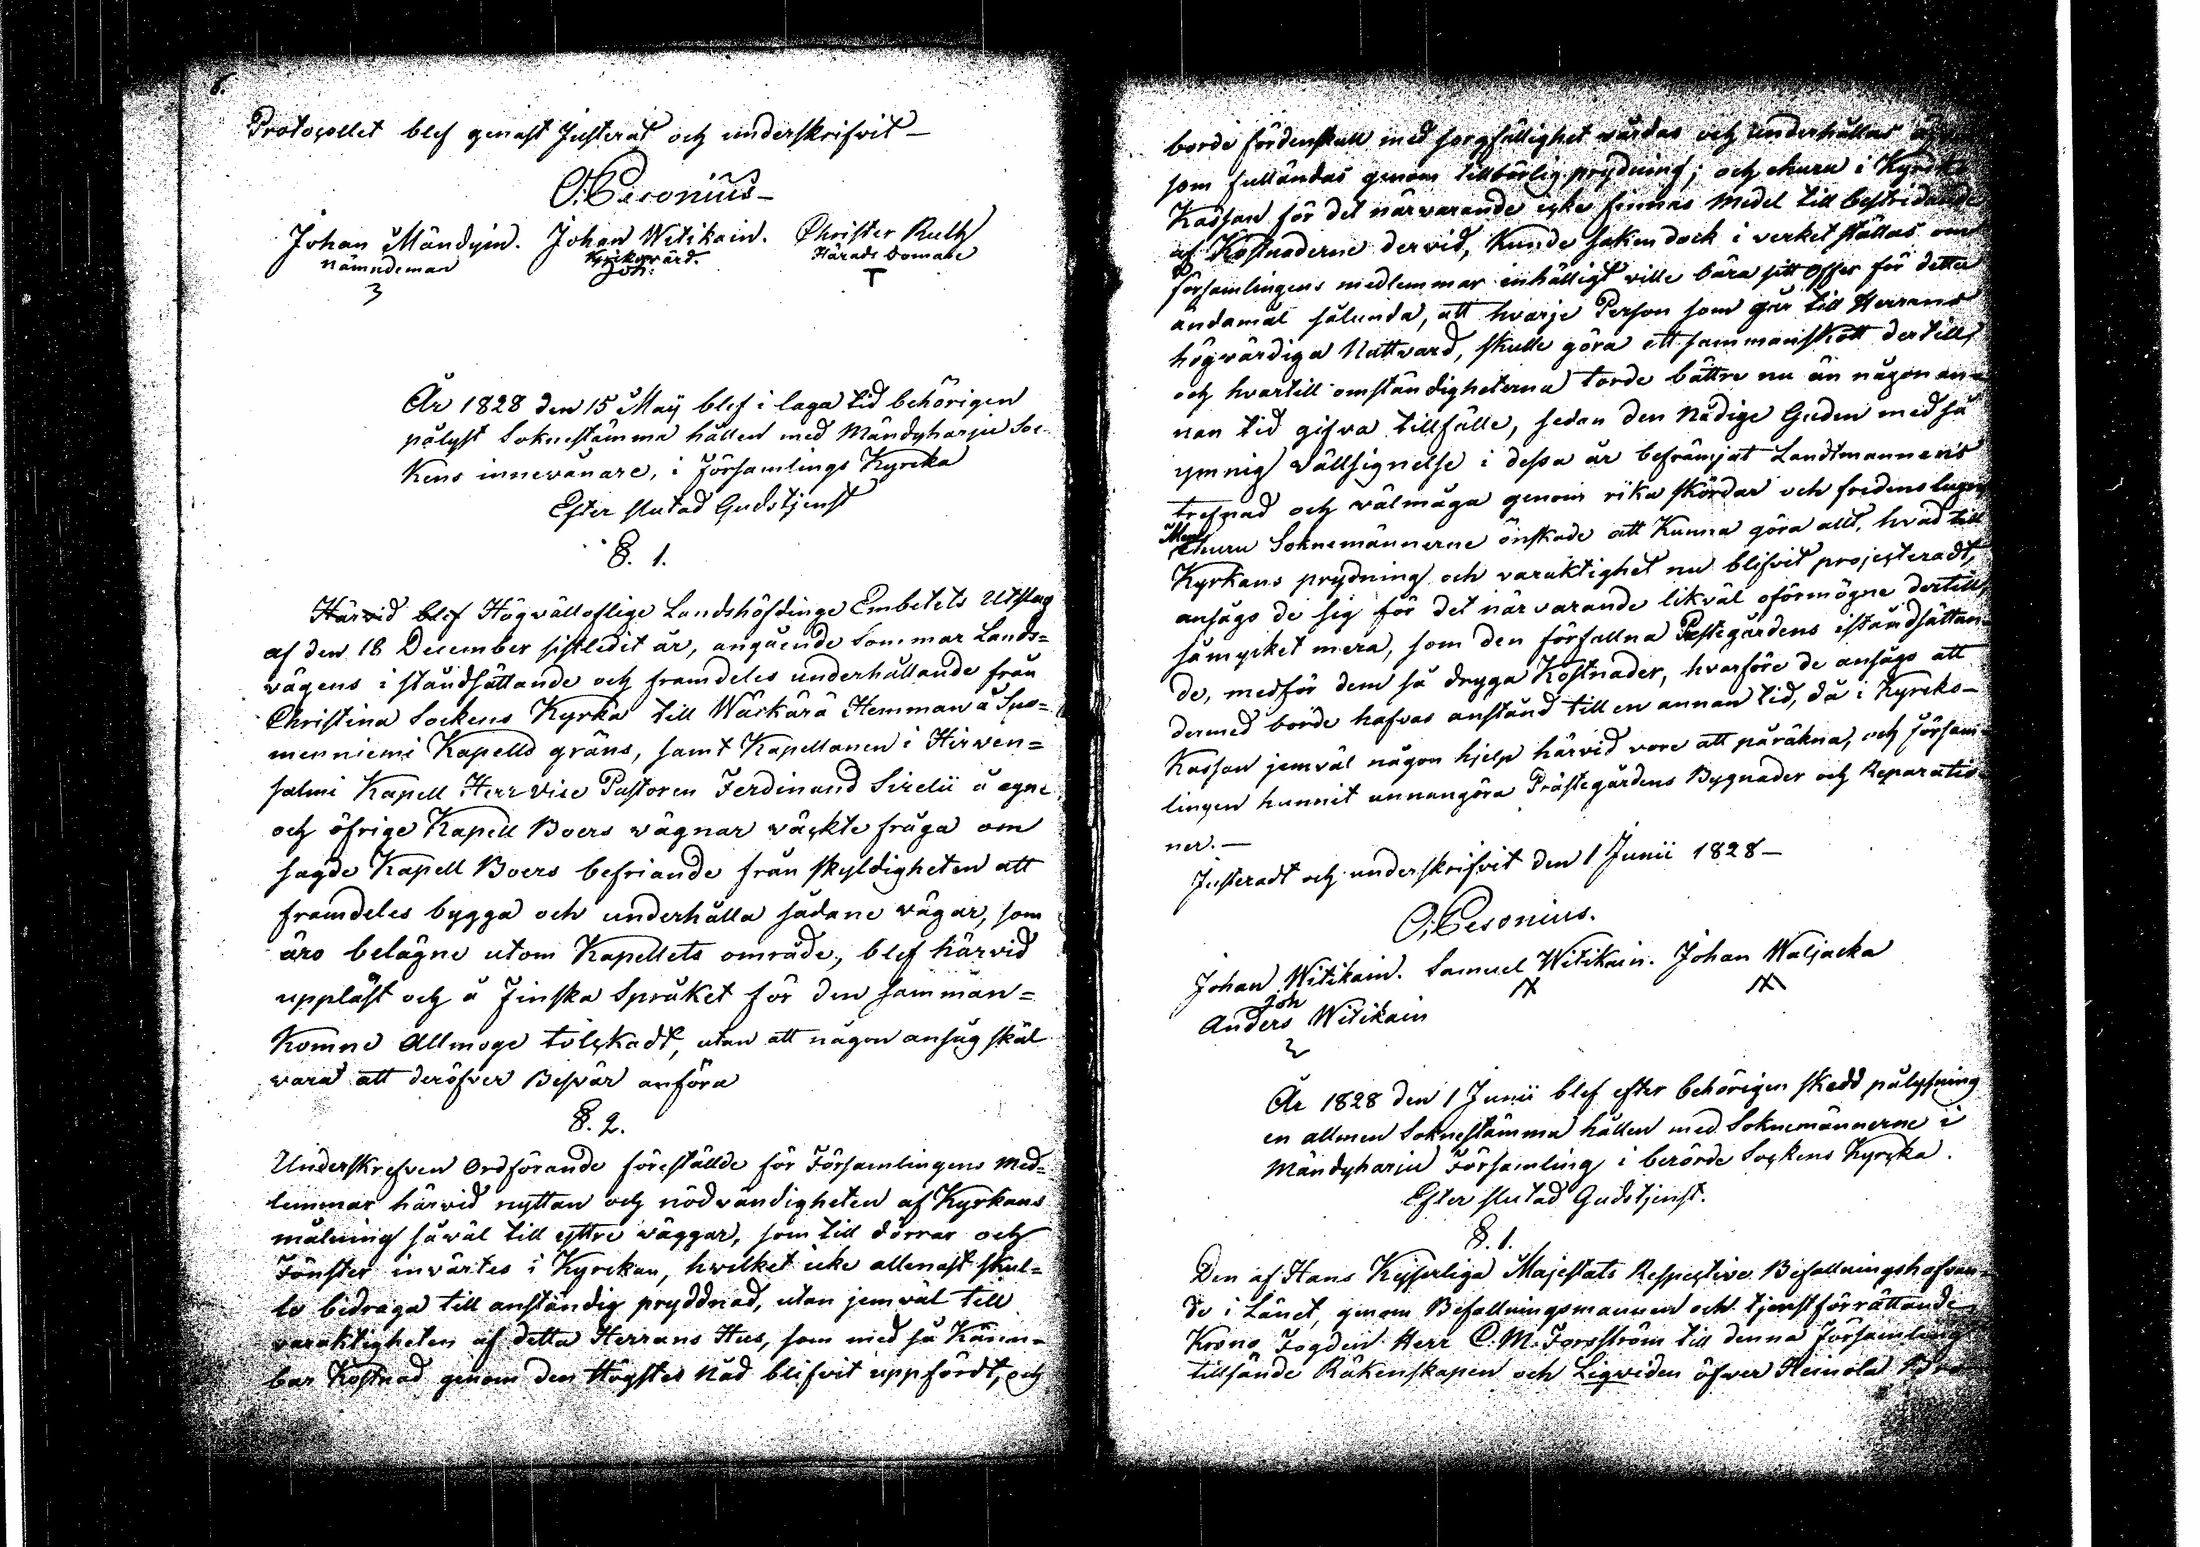 6.
Protocollet blef genast Justerat och underskrifvit –
O. Pesonius –
Johan Mändyin. Johan Witikain. Christer Ruth
Nämndeman Kyrkovärd. Härads Domare
3 Joh: T
År 1828 den 15 Maÿ blef i laga tid behörigen
pålyst Soknestämma hållen med Mändyharju Soc-
kens innevånare, i Församlings Kyrcka
Efter slutad Gudstjenst
§. 1.
Härvid blef Högvällofliga Landshöfdinge Embetets Utslag
af den 18 December sistledit år, angående Sommar Lands=
vägens i ståndsättande och framdeles underhållande från
Christina Sockens Kyrka till Wäckärä Hemman å Suo=
menniemi Kapells gräns, samt Kapellanen i Hirven=
salmi Kapell Herr Vice Pastoren Ferdinand Sirelii å egne
och öfrige Kapell Boers vägnar väckte fråga om
sagde Kapell Boers befriande från skyldigheten att
framdeles bygga och underhålla sådane vägar, som
äro belägne utom Kapellets område, blef härvid
uppläst och å Finska Språket för den samman=
komne Allmoge tolckadt, utan att någon ansåg skäl
vara att deröfver Besvär anföra
§. 2.
Underskrefven Ordförande föreställde för Församlingens Med=
lemmar härvid nyttan och nödvändigheten af Kyrkans
målning såväl till yttre väggar, som till dörrar och
Fönster invärtes i Kyrckan, hvilket icke allenast skul=
le bidraga till anständig pryddnad, utan jemväl till
varaktigheten af detta Herrans Hus, som med så känn=
bar Kostnad genom den Högstes Nåd blifvit uppfördt, och
borde fördenskull med sorgfällighet vårdas och underhållas
som fulländas genom tillbörlig prydning; och ehuru i Kyrcko
Kassan för det närvarande icke finnas Medel till bestridande
af Kostnaderne dervid, kunde saken dock i verket ställas om
Församlingens medlemmar enhälligt ville bära sitt offer för detta
ändamål sålunda, att hvarje Person som går till Herrans
högvärdiga Nattvard, skulle göra ett sammanskott dertill,
och hvartill omständigheterna torde bättre nu än någon an=
nan tid gifva tillfälle, sedan den Nådige Guden med så
ymnig välsignelse i dessa år befrämjat Landtmannens
trefnad och välmåga genom rika skördar och fredens lugn
Men ehuru Soknemännerne önskade att kunna göra allt, hvad till
Kyrkans prydning och varaktighet nu blifvit projecteradt,
ansågo de sig för det närvarande likväl oförmögne dertill,
såmycket mera, som den förfallna Pastegårdens iståndsättan=
de, medför dem så dryga Kostnader, hvarföre de ansågo att
dermed borde hafvas anstånd till en annan tid, då i Kyrcko-
Kassan jemväl någon hjelp härvid vore att påräkna, och försam=
lingen hunnit unnangöra Prästegårdens Bygnader och Reparatio=
ner. –
Justeradt och underskrifvit den 1 Junii 1828 –
O. Pesonius.
Johan Witikain. Samuel Witikain. Johan Waljacka
Joh
Anders Witikain
År 1828 den 1 Junii blef efter behörigen skedd pålysning
en allmen Soknestämma hållen med Soknemännerne i
Mändyharju Församling i berörde Sockens Kyrcka.
Efter slutad Gudstjenst.
§. 1.
Den af Hans Kejserliga Majestäts Respective Befallningshafvan=
de i Länet, genom Befallningsmannen och tjenstförrättande
Krono Fogden Herr C. M. Forsström till denna Församling
tillsände Räkenskapen och Liqviden öfver Heinola